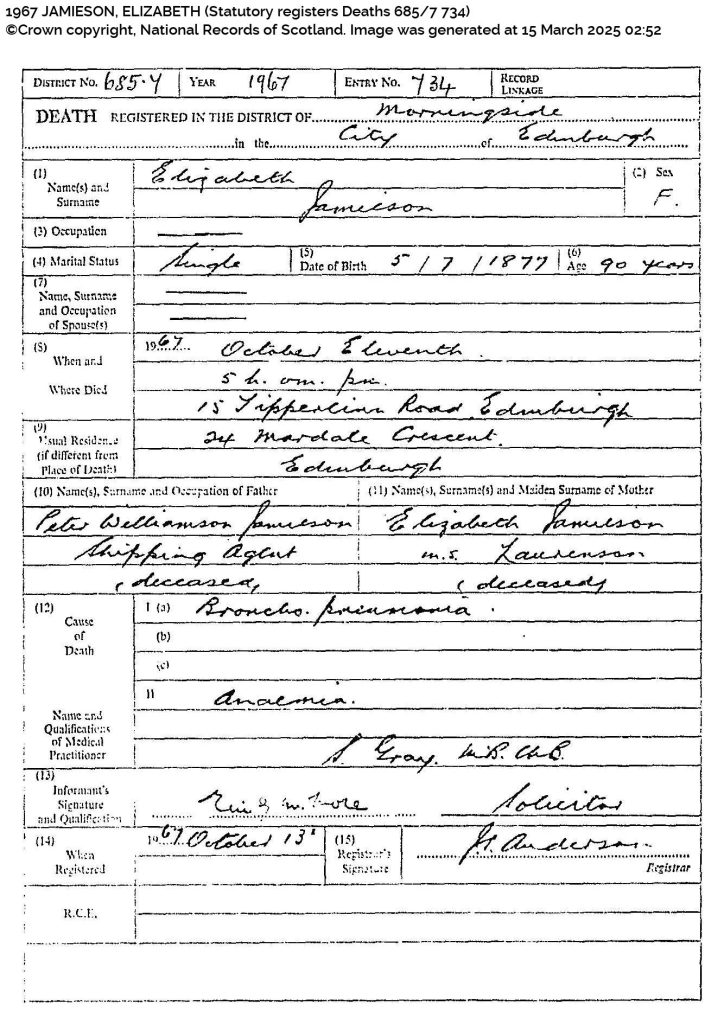 1967 JAMIESON, ELIZABETH (Statutory registers Deaths 685/7 734)
©Crown copyright, National Records of Scotland. Image was generated at 15 March 2025 02:52
DISTRICT NO. 685·7 YEAR 1967 ENTRY NO. 734 RECORD LINKAGE
DEATH REGISTERED IN THE DISTRICT OF Morningside
in the City of Edinburgh
(1) Name(s) and Surname Elizabeth Jamieson (2) Sex F.
(3) Occupation
(4) Marital Status Single (5) Date of Birth 5 / 7 / 1877 (6) Age 90 years
(7) Name, Surname and Occupation of Spouse(s)
(8) When and 1967 October Eleventh.
5 h. om. pm.
Where Died 15 Tipperlinn Road Edinburgh
(9) Usual Residence (if different from Place of Death) 24 Mardale Crescent.
Edinburgh
(10) Name(s), Surname and Occupation of Father (11) Name(s), Surname(s) and Maiden Surname of Mother
Peter Williamson Jamieson Elizabeth Jamieson
Shipping Agent m.s. Laurenson
(deceased) (deceased)
(12) Cause of Death I (a) Broncho. pneumonia.
(b)
(c)
II Anaemia.
Name and Qualifications of Medical Practitioner S. Gray. M.B. Ch.B.
(13) Informant's Signature and Qualification Solicitor
(14) When Registered 1967 October 13 (15) Registrar's Signature Anderson
Registrar
R.C.E.